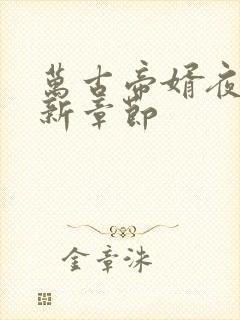 萬古帝婿夜
新章節
金章洙